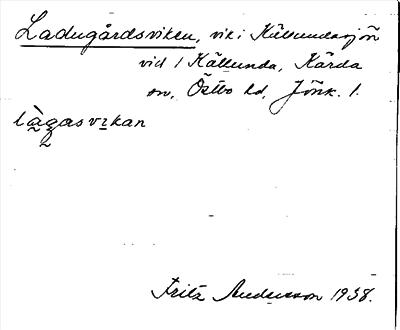 Ladugårdsviken, vik i Källundasjön
vid 1 Källunda, Kärda
sn, Östbo hd, Jönk. l.
làgasvikan
Fritz Andersson 1938.